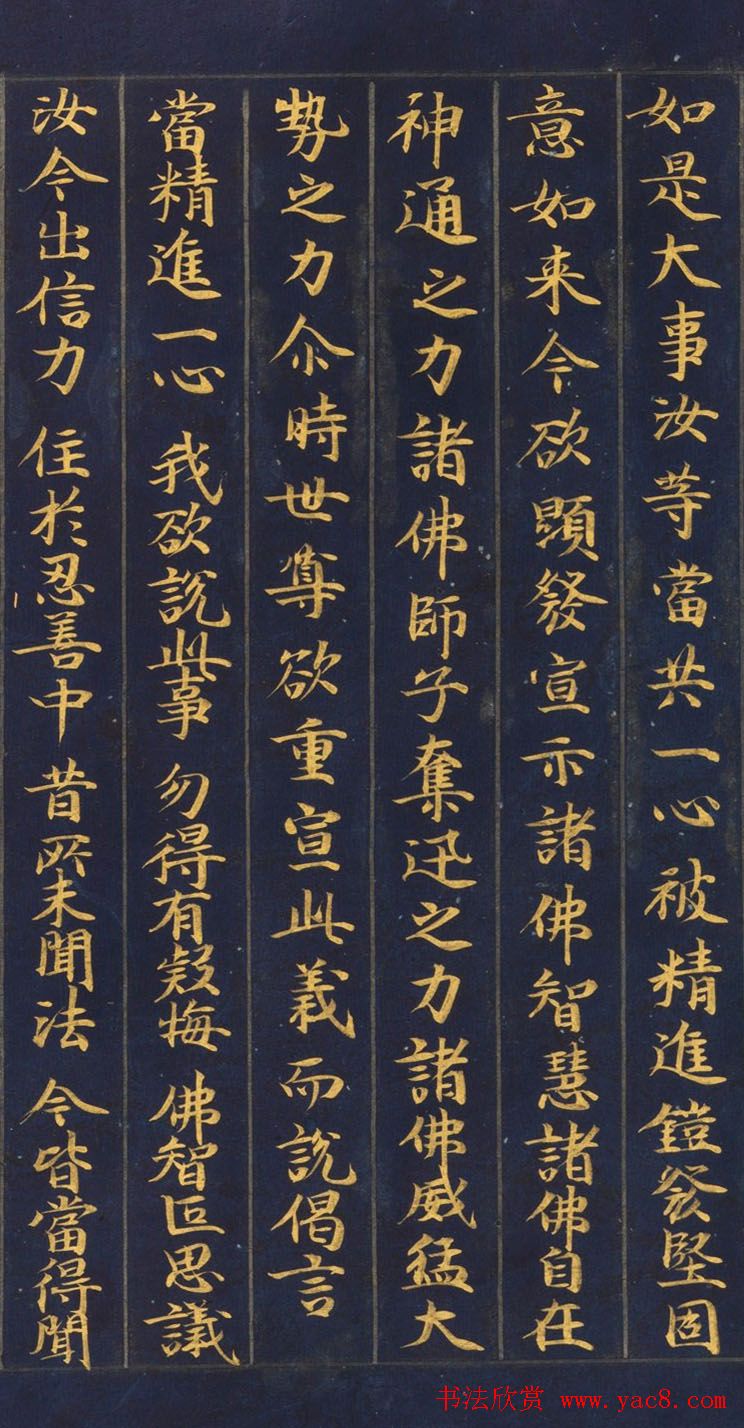 如是大事汝等當共一心被精進鎧發堅固
意如来今欲顯發宣示諸佛智慧諸佛自在
神通之力諸佛師子奮迅之力諸佛威猛大
勢之力尒時世尊欲重宣此義而說偈言
當精進一心 我欲說此事 勿得有疑悔 佛智叵思議
汝今出信力 住於忍善中 昔所未聞法 今皆當得聞
书法欣赏 www.yac8.com